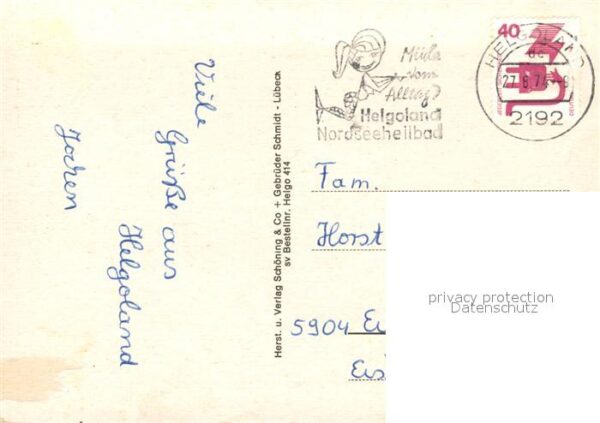 Viele
Grüße aus
Helgoland
Jochen
Herst. u. Verlag Schöning & Co + Gebrüder Schmidt - Lübeck
sv Bestellnr. Helgo 414
Müde
vom
Alltag?
Helgoland
Nordseeheilbad
40
HELGOLAND
27.8.74
2192
Fam.
Horst
5904 Ei
Eis
privacy protection
Datenschutz